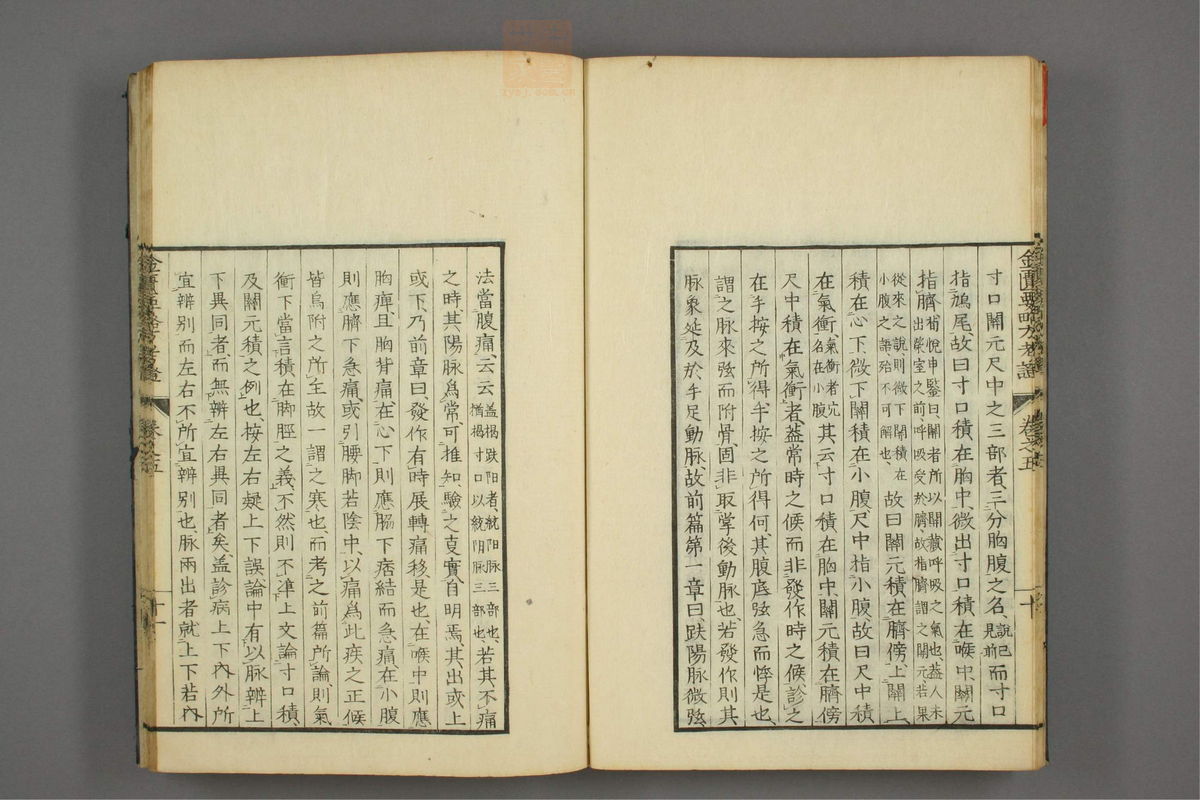 寸口關元尺中之三部者、三分胸腹之名、說已見前而寸口
指鳩尾、故曰寸口積在胸中、微出寸口積在喉中、關元
指臍、荀悅申鑒曰、關者所以關藏呼吸之氣也、蓋人未
出榮室之前呼吸受於臍故指臍謂之關元、若果
從來之說則微下關積在
小腹之語殆不可解也、故曰關元積在臍傍、上關上
積在心下、微下關積在小腹、尺中指小腹、故曰尺中積
在氣衝、氣衝者穴
名在小腹其云寸口積在胸中、關元積在臍傍
尺中積在氣衝者、蓋常時之候而非發作時之候、診之
在手按之所得、手按之所得何、其腹底弦急而悸是也、
謂之脉來弦而附骨、固非取掌後動脉也、若發作則其
脉象延及於手足動脉、故前篇第一章曰、趺陽脉微弦、
法當腹痛、云云蓋揭趺陽者、統陽脉三部也、
猶揭寸口以統陰脉三部也、若其不痛
之時、其陽脉爲常、可推知、驗之事實自明焉、其出或上
或下、乃前章曰發作有時展轉痛移是也、在喉中則應
胸痺、且胸背痛、在心下則應脇下痞結而急痛、在小腹
則應臍下急痛、或引腰脚若陰中、以痛爲此疾之正候
皆爲附之所主故一謂之寒也、而考之前篇所論、則氣
衝下當言積在脚脛之義、不然則不準上文論寸口積、
及關元積之例也、按左右疑上下誤論中有以脉辨上
下異同者、而無辨左右異同者矣、蓋診病上下內外所
宜辨別而左右不所宜辨別也脉兩出者就上下若內
金匱要略方考證
卷之五
十
卷之五
十一